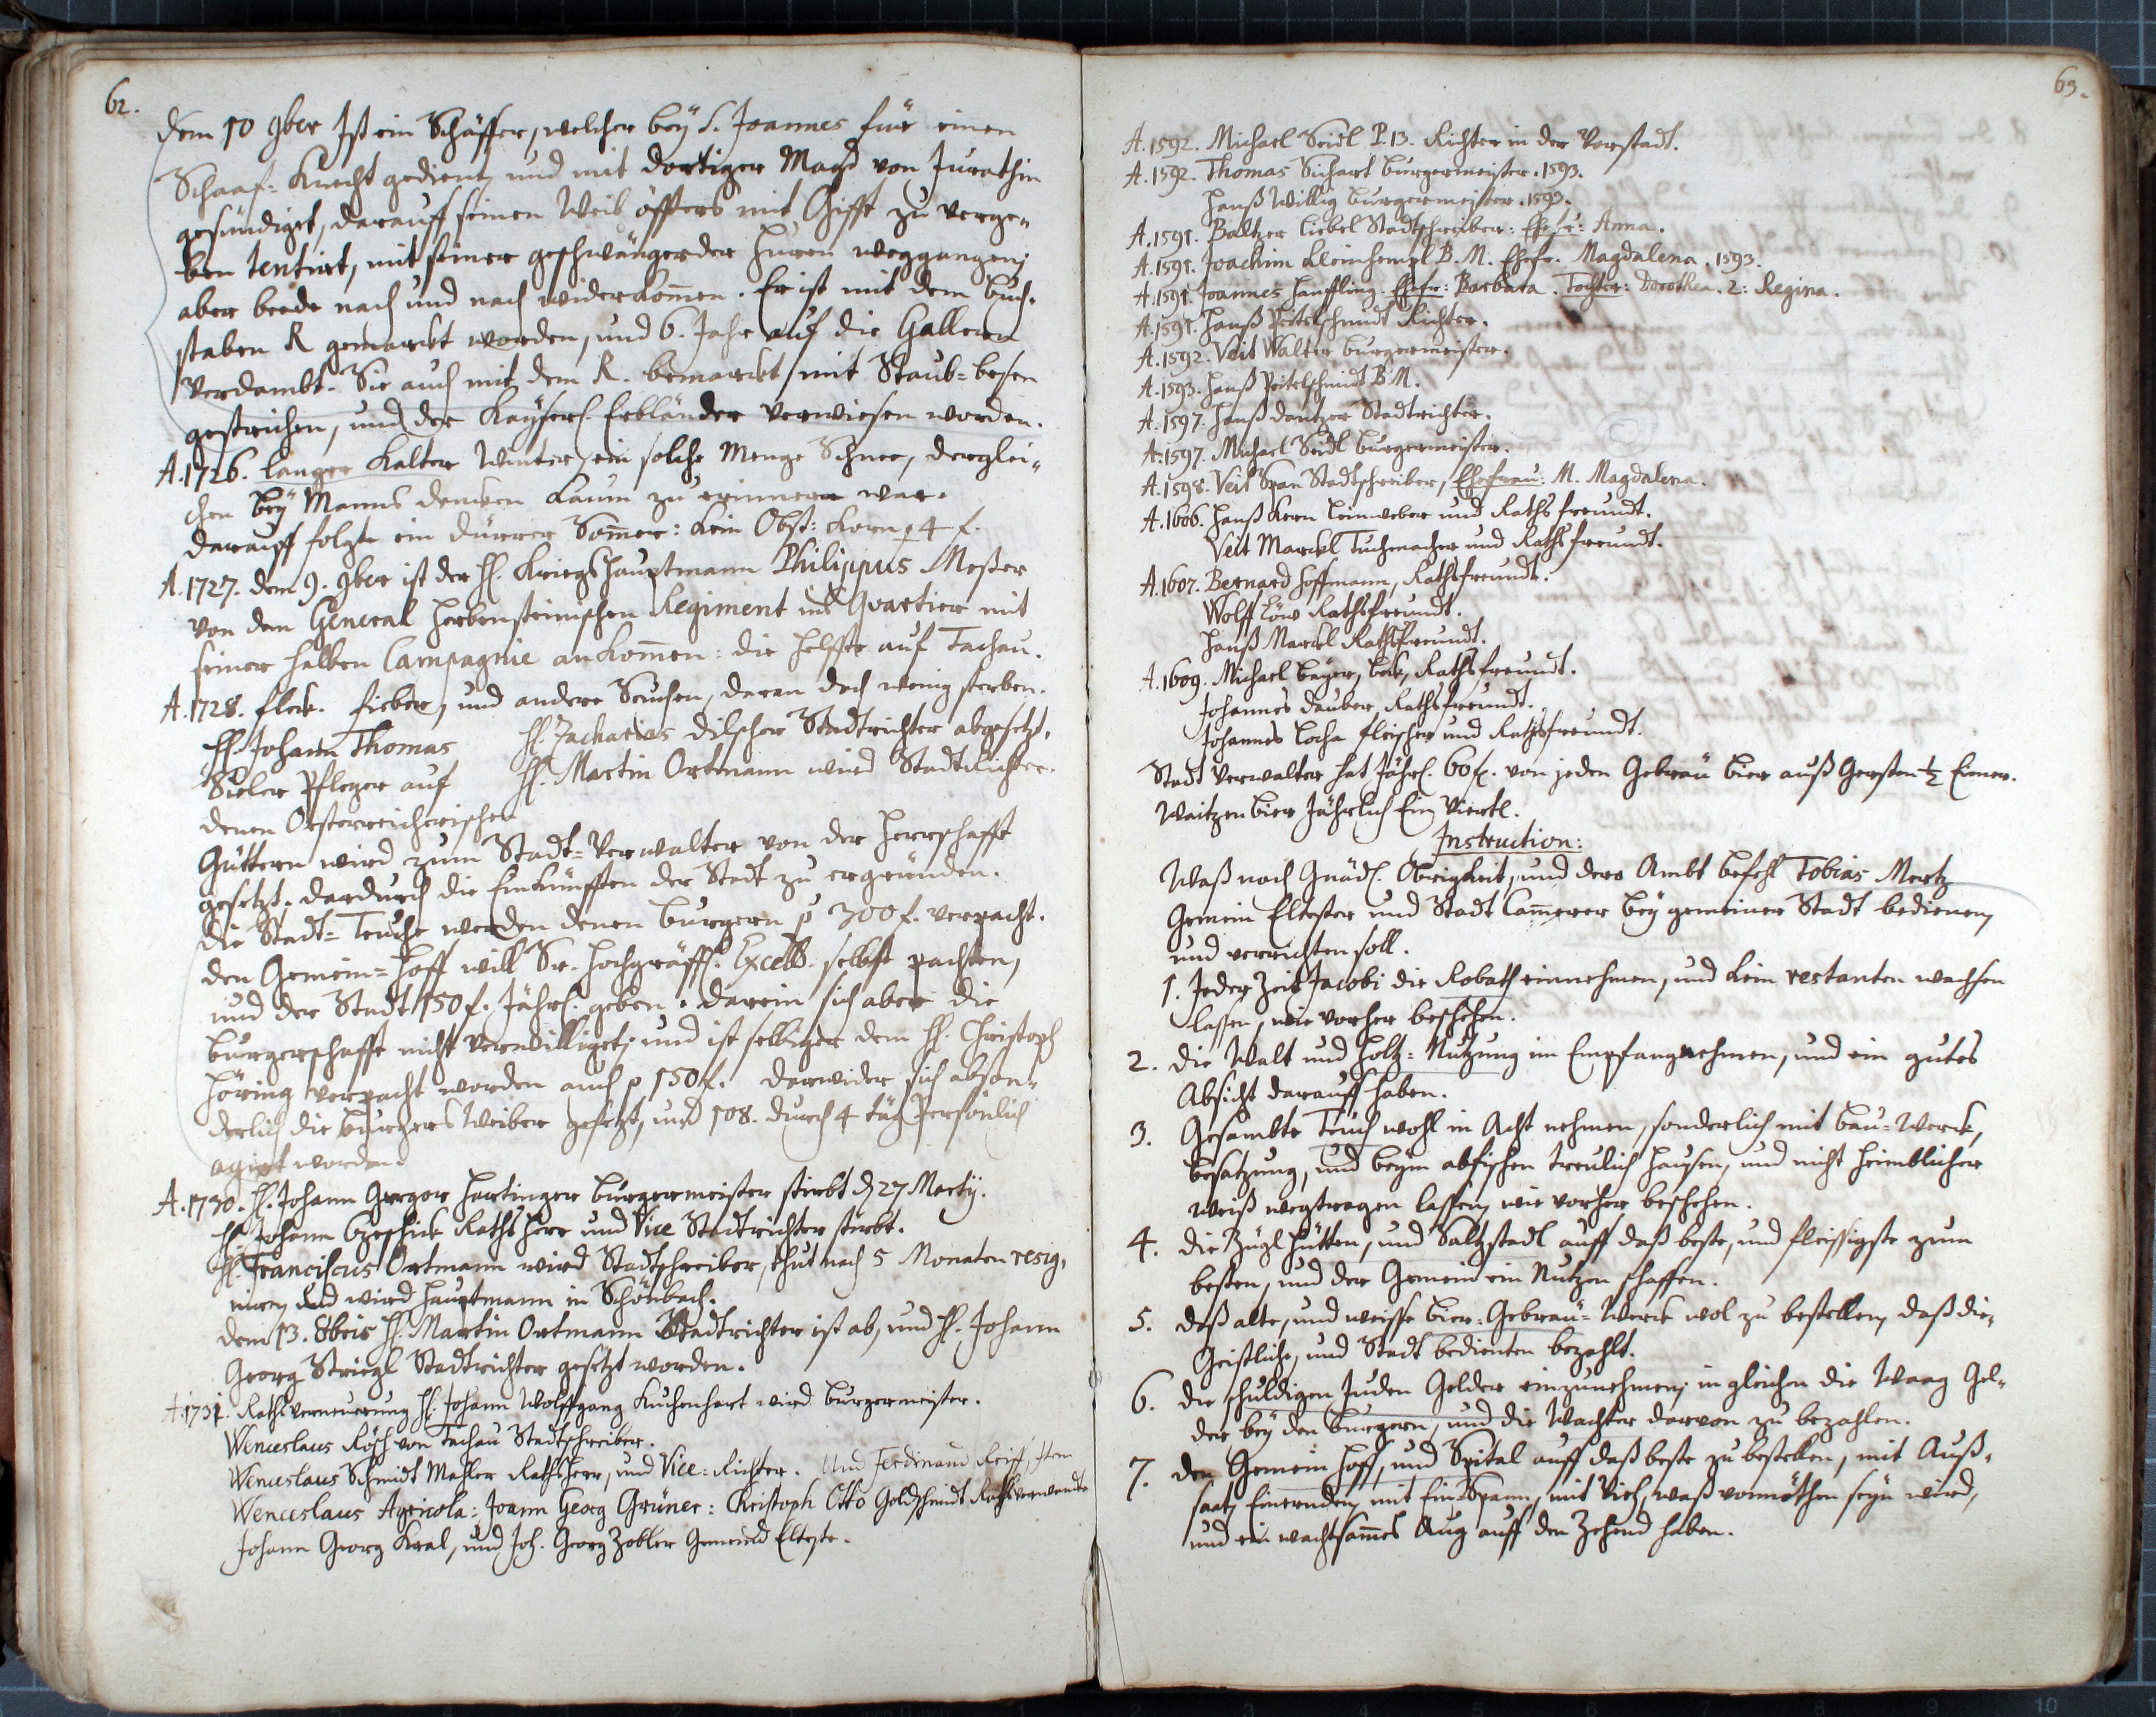 62.
Dem 10 9ber Ist ein Schäffer, welcher beÿ S. Joannes für einen
Schaaf=Knecht gedient, und mit dortiger Magd von Jurathin
gesündiget, darauff seinen Weib öffters mit Gifft zu verge¬
ben tentirt, mit seiner geschwängerder Huren weggangen,
aber beede nach und nach widerkom̅en. Er ist mit dem Buch¬
staben R gemarckt worden, und 6. Jahr auf die Galleren
Verdambt. Sie auch mit dem R. bemarckt, mit Staub=besen
gestrichen, und der Kaÿserl. Erbländer verwiesen worden.
A. 1726. langer kalter Winter, ein solche Menge Schnee, derglei¬
chen beÿ Manns dencken kaum zu erinnern war.
darauff folgte ein dürrer Som̅er: kein Obst: Korn p 4 f.
A. 1727. dem 9. 9ber ist der H. Kriegshauptmann Philippus Moser
von dem General Herbensteinischen Regiment ins Quartier mit
seiner halben Campagnie ankom̅en: die helffte auf Tachau.
A. 1728. fleck. fieber, und andere Seuchen, daran doch wenig sterben.
H. Johann Thomas H. Zacharias Dilscher Stadtrichter abgesetzt,
Sieler Pfleger auf H. Martin Ortmann wird Stadtrichter.
denen Oesterreicherischen
Güttern wird zum Stadt=Verwalter von der Herrschafft
gesetzt. dardurch die Einkünfften der Stadt zu ergründen.
die Stadt=Teuche werden denen burgern p 300 f. verpacht.
den Gemein=Hoff will Sr. Hochgräffl. Excell. selbst pachten,
und der Stadt 150 f. Jährl. geben. darein sich aber die
burgerschafft nicht verwilliget, und ist selbiger dem H. Christoph
Höring verpacht worden auch p 150 f. darwider sich abson¬
derlich die burgers Weiber gesetzt, und 108. durch 4 täg Persönlich
agirt worden.
A. 1730. H. Johann Gregor Hartinger burgermeister stirbt d 27 Martÿ.
H. Johann Raths Herr und Vice Stadtrichter stirbt.
H. Franciscus Ortmann wird Stadtschreiber, thut nach 5 Monaten resig¬
niren, und wird Hauptmann in Schönbach.
dem 13. 8bris H. Martin Ortmann Stadtrichter ist ab, und H. Johann
Georg Striegl Stadtrichter gesetzt worden.
A. 1731. Raths verneuerung H. Johann Wolffgang Kuchenhart wird burgermeister.
Wenceslaus Rösch von Tachau Stadtschreiber.
Wenceslaus Schmidt Mahler Rathsherr, und Vice=Richter. Und Ferdinand Reiff, Item
Wenceslaus Agricola: Joann Georg Grüner: Christoph Otto Goldschmidt Rathsverwandte
Johann Georg Kral, und Joh. Georg Zobler Gemeind Elteste.
63.
A. 1592. Michael Seidl P. 13. Richter in der Vorstadt.
A. 1592. Thomas Sichart burgermeister. 1593.
Hanß Willig burgermeister. 1593.
A. 1591. Baltzer Liebel Stadtschreiber: Ehefr: Anna.
A. 1591. Joachim Kleinhempl B. M. Ehefr. Magdalena. 1593.
A. 1591. Joannes Hanffling. Ehefr: Barbara. Tochter: Dorothea. 2: Regina.
A. 1591. Hanß Peitelschmidt Richter.
A. 1592. Veit Walter burgermeister.
A. 1593. Hanß Peitelschmidt B M.
A. 1597. Hanß Dantzer Stadtrichter.
A. 1597. Michael Seidl burgermeister.
A. 1598. Veit Span Stadtschreiber, Ehefrau: M. Magdalena.
A. 1606. Hanß Kern Leinweber und Raths freundt.
Veit Marckl Tuchmacher und Raths freundt.
A. 1607. Bernard Hoffmann, Rathsfreundt.
Wolff Löw Rathsfreundt.
Hanß Marckl Rathsfreundt.
A. 1609. Michael Baÿer, beck, Rathsfreundt.
Johannes Dauber, Rathsfreundt.
Johannes Locha fleischer und Rathsfreundt.
Stadt Verwalter hat Jährl. 60 f. von jeden Gebräu bier auß Gersten ½ Emer.
Waitzen bier Jährlich Ein Viertl.
Instruction:
Waß nach Gnäd. Obrigkeit, und dero Ambt befehl Tobias Mertz
Gemein Eltester und Stadt Cam̅erer beÿ gemeiner Stadt bedienen,
und verrichten soll.
1. Jeder Zeit Jacobi die Robath einnehmen, und kein restanten wachsen
lassen, wie vorher beschehen.
2. die Walt und Holtz=Nutzung im Empfang nehmen, und ein gutes
Absicht darauff haben.
3. Gesambte Teuch wohl in Acht nehmen, sonderlich mit bau=Werck,
besatzung, und beÿm abfischen treulich hausen, und nicht heimblicher
weiß wegtragen lassen, wie vorher beschehen.
4. die Zügl Hütten, und Saltzstadl auff daß beste, und fleissigste zum
besten, und der Gemein ein Nutzen schaffen.
5. Daß alte, und weisse bier=Gebräu=Werck wol zu bestellen, daß die
Geistliche, und Stadt bedienten bezahlt.
6. die schuldigen Juden Gelder einzunehmen, in gleichen die Waag Gel¬
der beÿ den burgern, und die Wachter darvon zu bezahlen.
7. den Gemein Hoff, und Spital auff daß beste zu bestellen, mit Auß¬
saat, Einernden, mit Ein=Spann, mit Vieh, waß vonnöthen seÿn wird,
und ein wachtsam̅es Aug auff den Zehend haben.